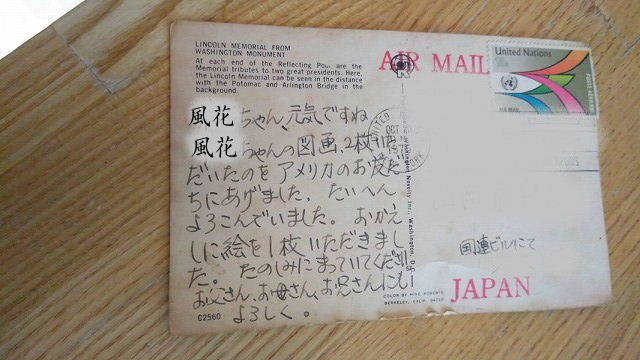 LINCOLN MEMORIAL FROM
WASHINGTON MONUMENT
At each end of the Reflecting Pool are the
Memorial tributes to two great presidents. Here,
the Lincoln Memorial can be seen in the distance
with the Potomac and Arlington Bridge in the
background.
風花ちゃん、元気ですね
風花ちゃんの図画、2枚いた
だいたのをアメリカのお友だ
ちにあげました。たいへん
よろこんでいました。おかえ
しに絵を1枚いただきまし
た。たのしみにまっていてください
お父さん、お母さん、お兄さんにも
よろしく。
C2560
AIR MAIL
United Nations
AIR MAIL
UNITED
OCT
Washington Novelty Inc., Washington, D.
国連ビルにて
COLOR BY MIKE ROBERTS
BERKELEY, CALIF. 94710
JAPAN